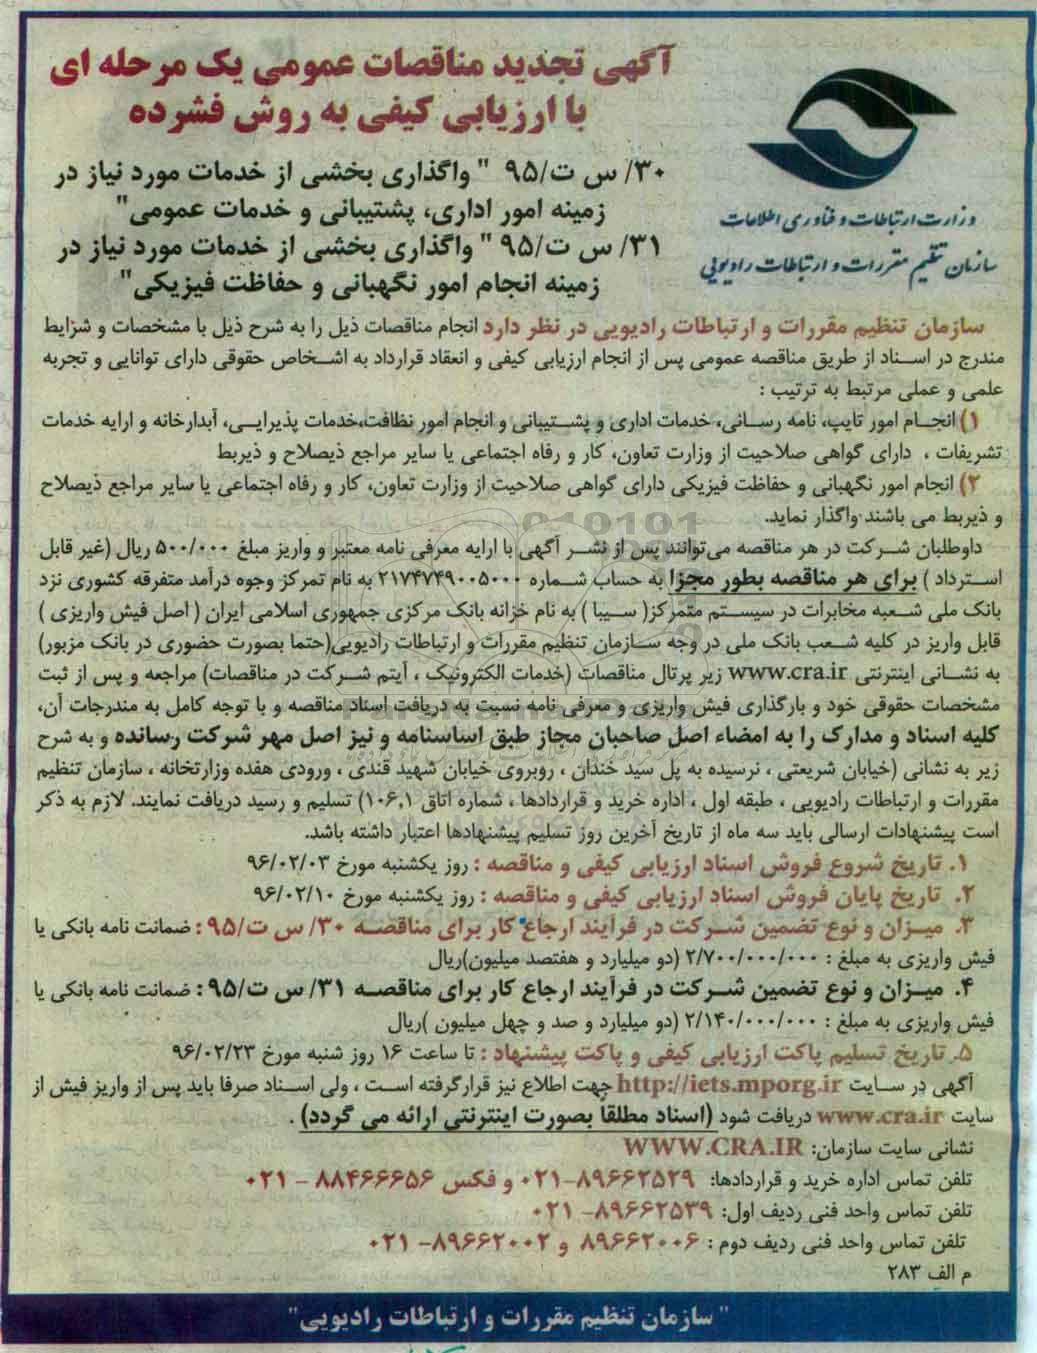 آگهی تجدید مناقصات عمومی یک مرحله ای
با ارزیابی کیفی به روش فشرده
۳۰/ س ت/۹۵ " واگذاری بخشی از خدمات مورد نیاز در
زمینه امور اداری، پشتیبانی و خدمات عمومی"
۳۱/ س ت/۹۵ " واگذاری بخشی از خدمات مورد نیاز در
زمینه انجام امور نگهبانی و حفاظت فیزیکی"
وزارت ارتباطات و فناوری اطلاعات
سازمان تنظیم مقررات و ارتباطات رادیویی
سازمان تنظیم مقررات و ارتباطات رادیویی در نظر دارد انجام مناقصات ذیل را به شرح ذیل با مشخصات و شرایط
مندرج در اسناد از طریق مناقصه عمومی پس از انجام ارزیابی کیفی و انعقاد قرارداد به اشخاص حقوقی دارای توانایی و تجربه
علمی و عملی مرتبط به ترتیب :
۱) انجام امور تایپ، نامه رسانی، خدمات اداری و پشتیبانی و انجام امور نظافت،خدمات پذیرایی، آبدارخانه و ارایه خدمات
تشریفات ، دارای گواهی صلاحیت از وزارت تعاون، کار و رفاه اجتماعی یا سایر مراجع ذیصلاح و ذیربط
۲) انجام امور نگهبانی و حفاظت فیزیکی دارای گواهی صلاحیت از وزارت تعاون، کار و رفاه اجتماعی یا سایر مراجع ذیصلاح
و ذیربط می باشند واگذار نماید.
داوطلبان شرکت در هر مناقصه می‌توانند پس از نشر آگهی با ارایه معرفی نامه معتبر و واریز مبلغ ۵۰۰/۰۰۰ ریال (غیر قابل
استرداد ) برای هر مناقصه بطور مجزا به حساب شماره ۲۱۷۴۷۴۹۰۰۵۰۰۰ به نام تمرکز وجوه درآمد متفرقه کشوری نزد
بانک ملی شعبه مخابرات در سیستم متمرکز( سیبا ) به نام خزانه بانک مرکزی جمهوری اسلامی ایران ( اصل فیش واریزی )
قابل واریز در کلیه شعب بانک ملی در وجه سازمان تنظیم مقررات و ارتباطات رادیویی(حتما بصورت حضوری در بانک مزبور)
به نشانی اینترنتی www.cra.ir زیر پرتال مناقصات (خدمات الکترونیک ، آیتم شرکت در مناقصات) مراجعه و پس از ثبت
مشخصات حقوقی خود و بارگذاری فیش واریزی و معرفی نامه نسبت به دریافت اسناد مناقصه و با توجه کامل به مندرجات آن،
کلیه اسناد و مدارک را به امضاء اصل صاحبان مجاز طبق اساسنامه و نیز اصل مهر شرکت رسانده و به شرح
زیر به نشانی (خیابان شریعتی ، نرسیده به پل سید خندان ، روبروی خیابان شهید قندی ، ورودی هفده وزارتخانه ، سازمان تنظیم
مقررات و ارتباطات رادیویی ، طبقه اول ، اداره خرید و قراردادها ، شماره اتاق ۱۰۶,۱) تسلیم و رسید دریافت نمایند. لازم به ذکر
است پیشنهادات ارسالی باید سه ماه از تاریخ آخرین روز تسلیم پیشنهادها اعتبار داشته باشد.
۱. تاریخ شروع فروش اسناد ارزیابی کیفی و مناقصه : روز یکشنبه مورخ ۹۶/۰۲/۰۳
۲. تاریخ پایان فروش اسناد ارزیابی کیفی و مناقصه : روز یکشنبه مورخ ۹۶/۰۲/۱۰
۳. میزان و نوع تضمین شرکت در فرآیند ارجاع کار برای مناقصه ۳۰/ س ت/۹۵ : ضمانت نامه بانکی یا
فیش واریزی به مبلغ : ۲/۷۰۰/۰۰۰/۰۰۰ (دو میلیارد و هفتصد میلیون)ریال
۴. میزان و نوع تضمین شرکت در فرآیند ارجاع کار برای مناقصه ۳۱/ س ت/۹۵ : ضمانت نامه بانکی یا
فیش واریزی به مبلغ : ۲/۱۴۰/۰۰۰/۰۰۰ (دو میلیارد و صد و چهل میلیون )ریال
۵. تاریخ تسلیم پاکت ارزیابی کیفی و پاکت پیشنهاد : تا ساعت ۱۶ روز شنبه مورخ ۹۶/۰۲/۲۳
آگهی در سایت http://iets.mporg.ir جهت اطلاع نیز قرارگرفته است ، ولی اسناد صرفا باید پس از واریز فیش از
سایت www.cra.ir دریافت شود (اسناد مطلقاً بصورت اینترنتی ارائه می گردد) .
نشانی سایت سازمان: WWW.CRA.IR
تلفن تماس اداره خرید و قراردادها: ۸۹۶۶۲۵۲۹-۰۲۱ و فکس ۸۸۴۶۶۶۵۶ - ۰۲۱
تلفن تماس واحد فنی ردیف اول: ۸۹۶۶۲۵۳۹- ۰۲۱
تلفن تماس واحد فنی ردیف دوم : ۸۹۶۶۲۰۰۶ و ۸۹۶۶۲۰۰۲- ۰۲۱
م الف ۲۸۳
" سازمان تنظیم مقررات و ارتباطات رادیویی"